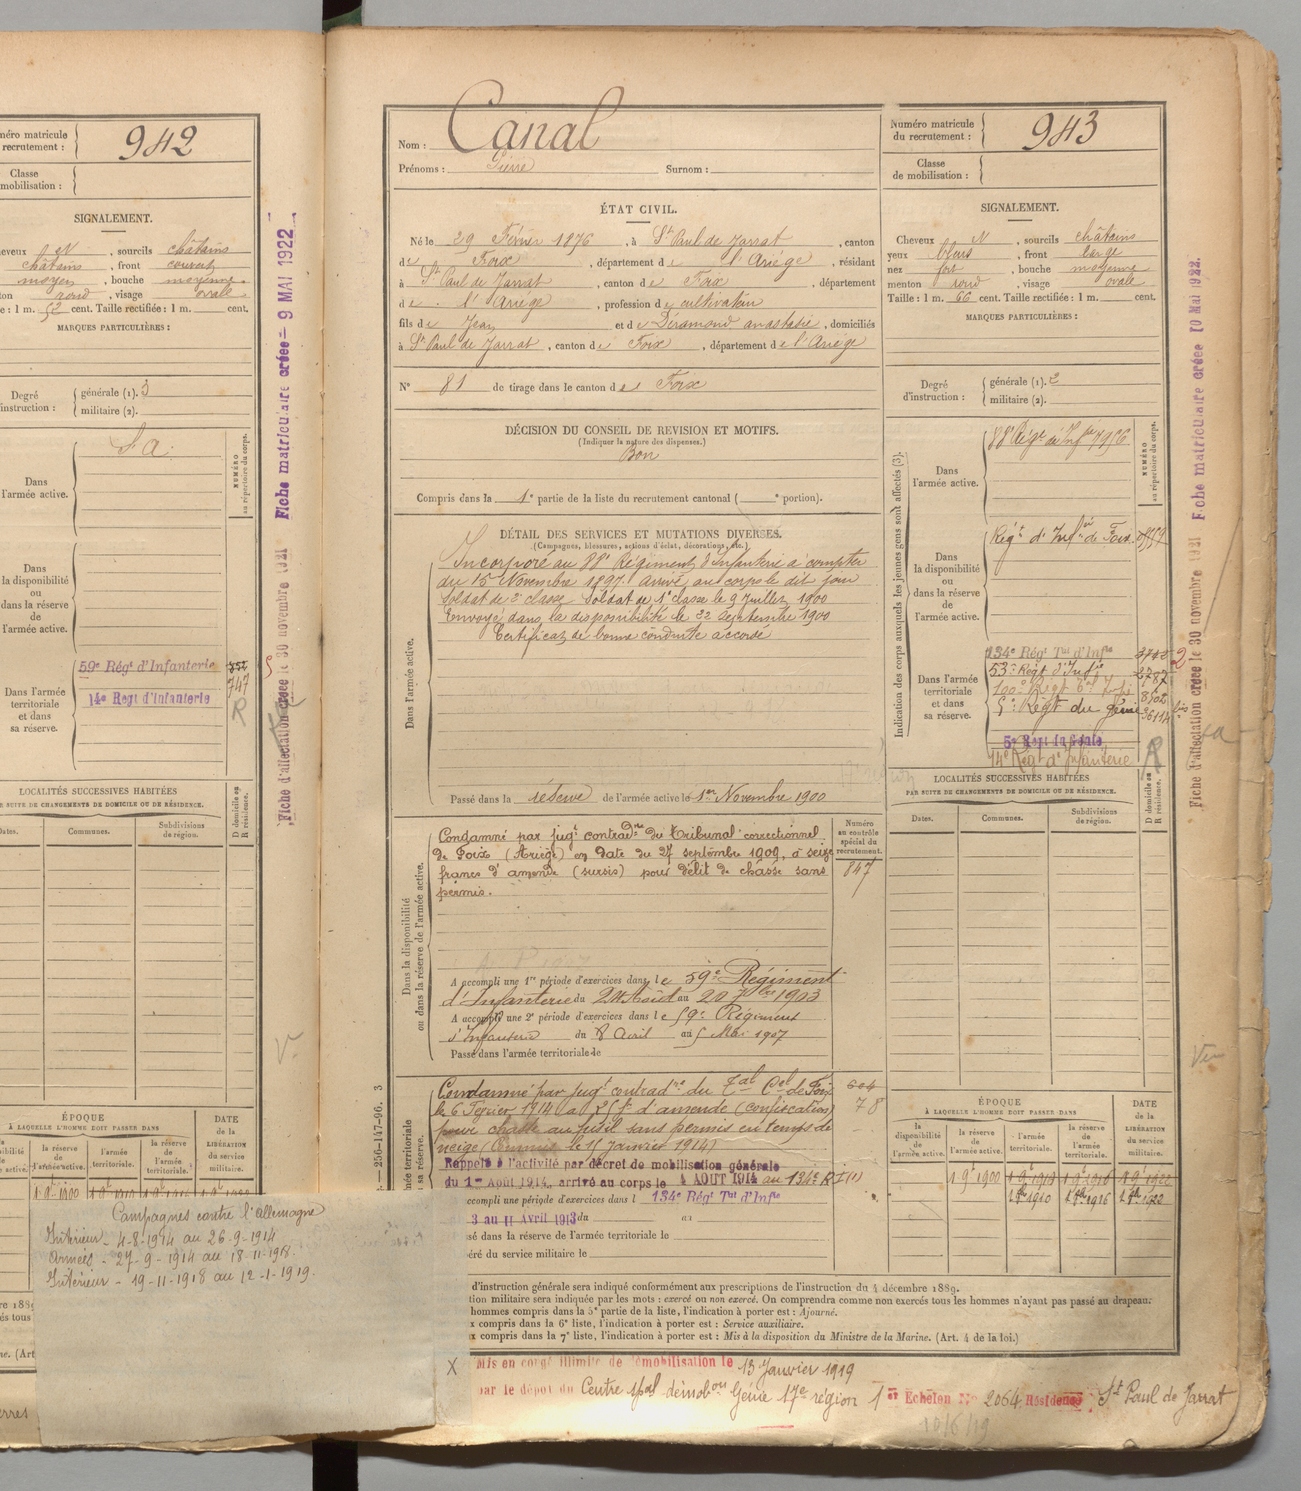 Numéro matricule
recrutement :
942
Classe
mobilisation :
SIGNALEMENT.
Cheveux N , sourcils châtains
châtains , front couvert
moyen , bouche moyenne
rond , visage ovale
: 1 m. 52 cent. Taille rectifiée : 1 m. cent.
MARQUES PARTICULIÈRES :
Degré
d'instruction :
générale (1). 3
militaire (2).
S A.
Dans
l'armée active.
NUMÉRO
au répertoire du corps.
Dans
la disponibilité
ou
dans la réserve
de
l'armée active.
Dans l'armée
territoriale
et dans
sa réserve.
59e Régt d'Infanterie
747
14e Regt d'Infanterie
R
Fiche d'affectation créée le 30 novembre 1921
Fiche matriculaire créée = 9 MAI 1922
LOCALITÉS SUCCESSIVES HABITÉES
PAR SUITE DE CHANGEMENTS DE DOMICILE OU DE RÉSIDENCE.
Dates.
Communes.
Subdivisions
de région.
D domicile ou
R résidence.
ÉPOQUE
À LAQUELLE L'HOMME DOIT PASSER DANS
DATE
de la
LIBÉRATION
du service
militaire.
la réserve
de
l'armée active.
l'armée
territoriale.
la réserve
de
l'armée
territoriale.
Campagnes contre l'Allemagne
Intérieur - 4-8-1914 au 26-9-1914
Armées - 27-9-1914 au 18-11-1918.
Intérieur - 19-11-1918 au 12-1-1919.
Nom : Canal
Prénoms : Pierre Surnom :
Numéro matricule
du recrutement :
943
Classe
de mobilisation :
ÉTAT CIVIL.
Né le 29 Février 1876 , à St Paul de Jarrat , canton
de Foix , département de l'Ariége , résidant
à St Paul de Jarrat , canton de Foix , département
de l'Ariége , profession de cultivateur
fils de Jean et de Déramond anastasie , domiciliés
à St Paul de Jarrat , canton de Foix , département de l'Ariége
N° 81 de tirage dans le canton de Foix
DÉCISION DU CONSEIL DE REVISION ET MOTIFS.
(Indiquer la nature des dispenses.)
Bon
Compris dans la 1e partie de la liste du recrutement cantonal ( e portion).
DÉTAIL DES SERVICES ET MUTATIONS DIVERSES.
(Campagnes, blessures, actions d'éclat, décorations, etc.)
Dans l'armée active.
Incorporé au 88e Régiment d'Infanterie à compter
du 15 Novembre 1897 arrivé au corps le dit jour
Soldat de 2e classe Soldat de 1e classe le 9 Juillet 1900
Envoyé dans la disponibilité le 22 Septembre 1900
Certificat de bonne conduite accordé
Passé dans la réserve de l'armée active le 1er Novembre 1900
Dans la disponibilité
ou dans la réserve de l'armée active.
Condamné par jugt contradre du tribunal correctionnel
de Foix (Ariége) en date du 27 septembre 1909, à seize
francs d'amende (sursis) pour délit de chasse sans
permis.
Numéro
au contrôle
spécial du
recrutement.
847
A accompli une 1re période d'exercices dans le 59e Régiment
d'Infanterie du 24 Août au 20 7bre 1903
A accompli une 2e période d'exercices dans le 59e Régiment
d'Infanterie du 8 Avril au 5 Mai 1907
Passé dans l'armée territoriale
Condamné par jugt contradre du Tal Cel de Foix
le 6 Février 1914 à 25 f. d'amende (confiscation)
pour chasse au fusil sans permis en temps de
neige (Commis le 15 Janvier 1914)
78
Rappelé à l'activité par décret de mobilisation générale
du 1er Août 1914, arrivé au corps le 4 AOUT 1914 au 134e R.I (1)
accompli une période d'exercices dans l 134e Régt Tal d'Infie
3 au 11 Avril 1913 du au
sé dans la réserve de l'armée territoriale le
éré du service militaire le
—256-147-96. 3
d'instruction générale sera indiqué conformément aux prescriptions de l'instruction du 4 décembre 1889.
tion militaire sera indiquée par les mots : exercé ou non exercé. On comprendra comme non exercés tous les hommes n'ayant pas passé au drapeau.
hommes compris dans la 5e partie de la liste, l'indication à porter est : Ajourné.
x compris dans la 6e liste, l'indication à porter est : Service auxiliaire.
x compris dans la 7e liste, l'indication à porter est : Mis à la disposition du Ministre de la Marine. (Art. 4 de la loi.)
X Mis en congé illimité de démobilisation le 13 Janvier 1919
par le dépôt du Centre spal démobon Génie 17e région 1er Echelon No 2054 Résidence St Paul de Jarrat
10/6/19
SIGNALEMENT.
Cheveux N , sourcils châtains
yeux bleus , front large
nez fort , bouche moyenne
menton rond , visage ovale
Taille : 1 m. 66 cent. Taille rectifiée : 1 m. cent.
MARQUES PARTICULIÈRES :
Degré
d'instruction :
générale (1). 2
militaire (2).
Indication des corps auxquels les jeunes gens sont affectés (3).
Dans
l'armée active.
88e Régt d'Infie 7956
NUMÉRO
au répertoire du corps.
Dans
la disponibilité
ou
dans la réserve
de
l'armée active.
Régt d'Infie de Foix
Dans l'armée
territoriale
et dans
sa réserve.
134e Régt Tal d'Infie
53e Régt d'Infie
5e Régt du génie 36114 bis
5e Régt du Génie
14e Régt d'Infanterie
R
Fiche d'affectation créée le 30 novembre 1921
Fiche matriculaire créée 10 MAI 1922.
LOCALITÉS SUCCESSIVES HABITÉES
PAR SUITE DE CHANGEMENTS DE DOMICILE OU DE RÉSIDENCE.
Dates.
Communes.
Subdivisions
de région.
D domicile ou
R résidence.
ÉPOQUE
À LAQUELLE L'HOMME DOIT PASSER DANS
DATE
de la
LIBÉRATION
du service
militaire.
la
disponibilité
de
l'armée active.
la réserve
de
l'armée active.
l'armée
territoriale.
la réserve
de
l'armée
territoriale.
1 9e 1900 1 9e 1910 1 9e 1916 1 9e 1922